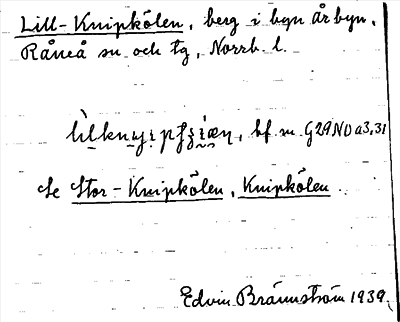 Lill-Knipkölen, berg i byn Årbyn,
Råneå sn och tg, Norrb. l.
bf. m. G29NO a3,31
Se Stor-Knipkölen, Knipkölen.
Edvin Brännström 1939.